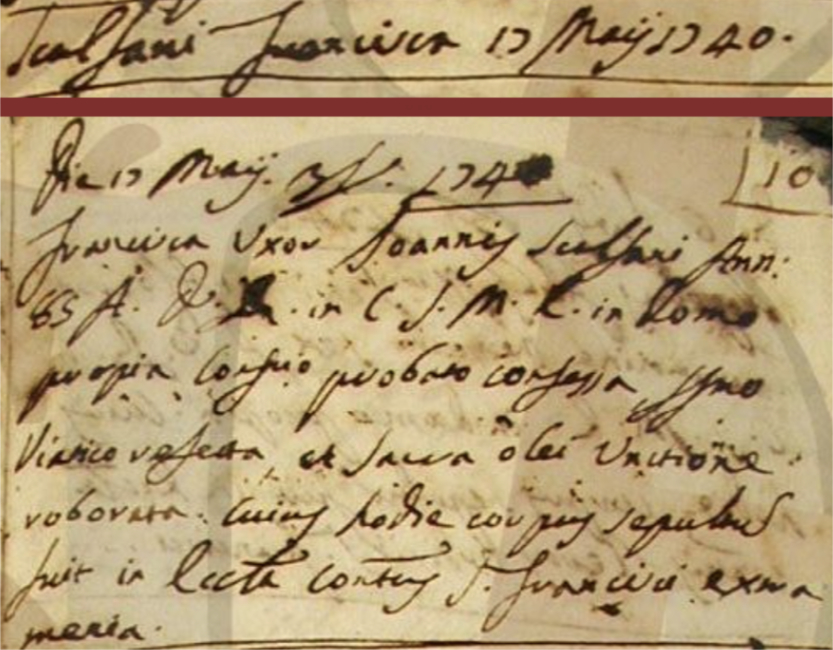 Scalfani Francisca 17 Maij 1740.
Die 17 Maij. 3 Ind. 1740
10
Francisca Uxor Joannis Scalfani Ann:
65 A. D. in C. S. M. E. in Domo
propia Confrio probato confessa SSmo
Viatico refecta et Sacra olei Unctione
roborata. Cuius hodie corpus sepultus
fuit in Eccta Contus S. Francisci extra
menia.